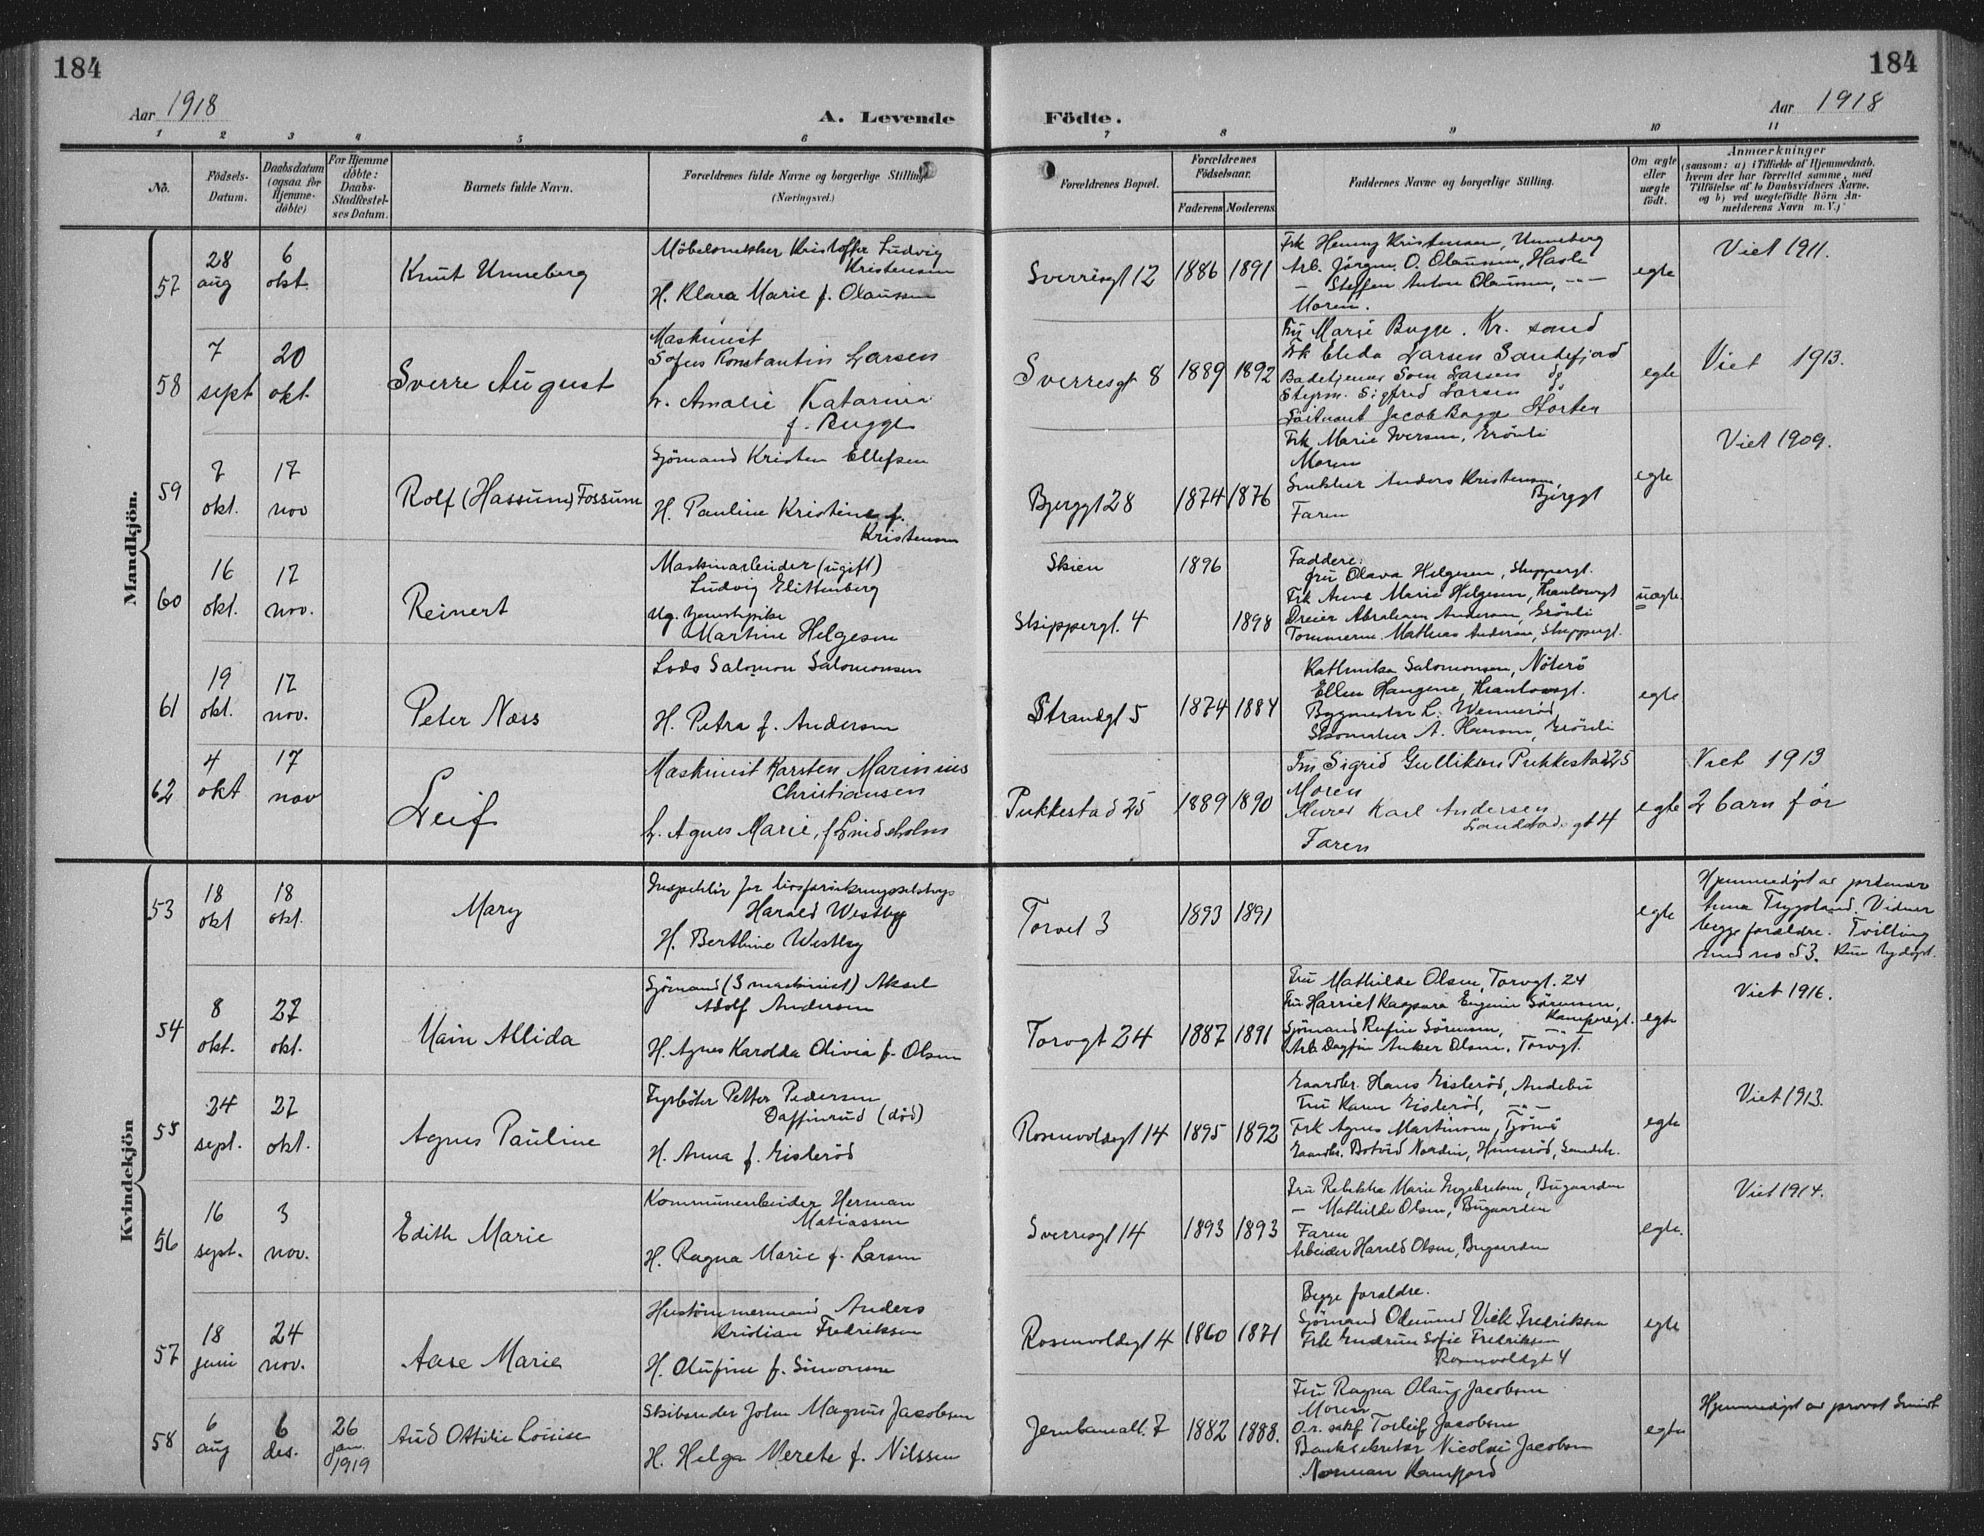 184
184
Aar 1918
A. Levende Födte.
Aar 1918
1 2 3 4 5 6 7 8 9 10 11
Nô.
Födsels-Datum.
Daabsdatum (ogsaa for Hjemme-döbte)
For Hjemme döbte: Daabs-Stadfæstelses Datum.
Barnets fulde Navn.
Forældrenes fulde Navne og borgerlige Stilling (Næringsvei.)
Forældrenes Bopæl.
Forældrenes Födselsaar.
Faderens Moderens
Faddernes Navne og borgerlige Stilling.
Om ægte eller uægte født.
Anmærkninger
(saasom: a) i Tilfælde af Hjemmedaab, hvem der har forrettet samme, med Tilföielse af to Daabsvidners Navne. og b) ved uægtefödte Börn Anmelderens Navn m. V.)
Mandkjön.
57
28 aug
6 okt.
Knut Unneberg
Möbelsnekker Kristoffer Ludvig Kristensen
H. Klara Marie f. Olaussen
Sverresgt 12
1886 1891
Frk Henny Kristensen, Unneberg
Arb. Jörgen O. Olaussen, Hasle
— Steffen Anton Olaussen, — —
Moren.
egte
Viet 1911.
58
7 sept
20 okt.
Sverre August
Maskinist
Sofus Konstantin Larsen
h. Amalie Katarina
f. Bugge
Sverresgt 8
1889 1892
Fru Marie Bugge. Kr. sand
Frk Elida Larsen Sandefjord
Badetjener Sven Larsen do
Styrm. Sigfred Larsen do
Löitnant Jacob Bugge Horten
egte
Viet 1913.
59
7 okt.
17 nov
Rolf (Hassum) Fossum
Sjömand Kristen Ellefsen
H. Pauline Kristine f.
Kristensen
Bjerggt 28
1874 1876
Frk Marie Iversen, Grönli
Moren
Snekker Anders Kristensen,
Bjerggt
Faren
egte
Viet 1909.
60
16 okt.
17 nov.
Reinert
Maskinarbeider (ugift)
Ludvig Flittenberg
Ug.
Martine Helgesen
Skien
Skippergt. 4
1896
1898
Faddere:
fru Olava Helgesen, Skippergt.
Frk Anne Marie Helgesen,
Dreier Abraham Andersen, Grönli
Tommerm. Mathias Andersen, Skippergt.
uegte.
61
19 okt.
17 nov.
Peter Næss
Lods Salomon Salomonsen
H. Petra f. Andersen
Strandgt 5
1874 1884
Kathinka Salomonsen, Nöterö
Ellen Haugene,
Bygmester L. Wennerød
Skomaker A. Hansen, Grönli
egte
62
4 okt
17 nov
Leif
Maskinist Karsten Marinius
Christiansen
h. Agnes Marie, f Lindsholm
Pukkestad 25
1889 1890
Fru Sigrid Gulliksen Pukkestad 25
Moren
Murer Karl Andersen
Landstadsgt 4
Faren
egte
Viet 1913
2 barn før
Kvindekjön
53
18 okt
18 okt.
Mary
Inspektör for livsforsikringsselskap
Harald Westby
H. Berthine Westby
Torvet 3
1893 1891
egte
Hjemmedöpt av jordmor
Anna Trygstand. Vidner
begge foraldre. Tvilling
med no 53. Kun nøddöpt.
54
8 okt.
27 okt.
Main Allida
Sjömand (3 maskinist) Aksel
Adolf Andersen
H. Agnes Karolda Olivia f. Olsen
Torvgt 24
1887 1891
Fru Mathilde Olsen, Torvgt. 24
Fru Harriet Kaspara Eugenie Sörensen,
Kampegt.
Sjömand Rufin Sörensen, — —
Arb. Dagfin Anker Olsen, Torvgt.
egte
Viet 1916.
55
24 sept.
27 okt.
Agnes Pauline
Fyrböter Petter Pedersen
Daffinrud (död)
H. Anna f. Gislerød
Rosenvoldsgt 14
1895 1892
Gaardbr. Hans Gislerød, Andebu
Fru Karen Gislerød, — —
Frk Agnes Martinsen, Tjömö
Gaardbr. Botvid Nordin, Hunsröd, Sandeh.
egte
Viet 1913.
56
16 sept.
3 nov.
Edith Marie
Kommunearbeider Herman
Matiassen
H. Ragna Marie f. Larsen
Sverresgt 14
1893 1893
Fru Rebekka Marie Ingebretsen, Bugaarden
— Mathilde Olsen, Bugaarden
Faren
Arbeider Harald Olsen, Bugaarden
egte.
Viet 1914.
57
18 juni
24 nov.
Aase Marie
Hustömmermand Anders
Kristian Fredriksen
H. Olufine f. Simonsen
Rosenvoldsgt 4
1860 1871
Begge foraldre.
Sjömand Odmund Vick Fredriksen
Frk Gudrun Sofie Fredriksen
Rosenvoldgt 4
egte
58
6 aug
6 des.
26 jan. 1919
Aud Ottilie Louise
Skibsreder John Magnus Jacobsen
H. Helga Merete f. Nilssen
Jernbaneall. 7
1882 1888.
Fru Ragna Olaug Jacobsen
Moren
O.r. sakf. Torleif Jacobsen
Banksekretær Nicolai Jacobsen
Norman Kamfjord
egte
Hjemmedöpt av provst Smidt